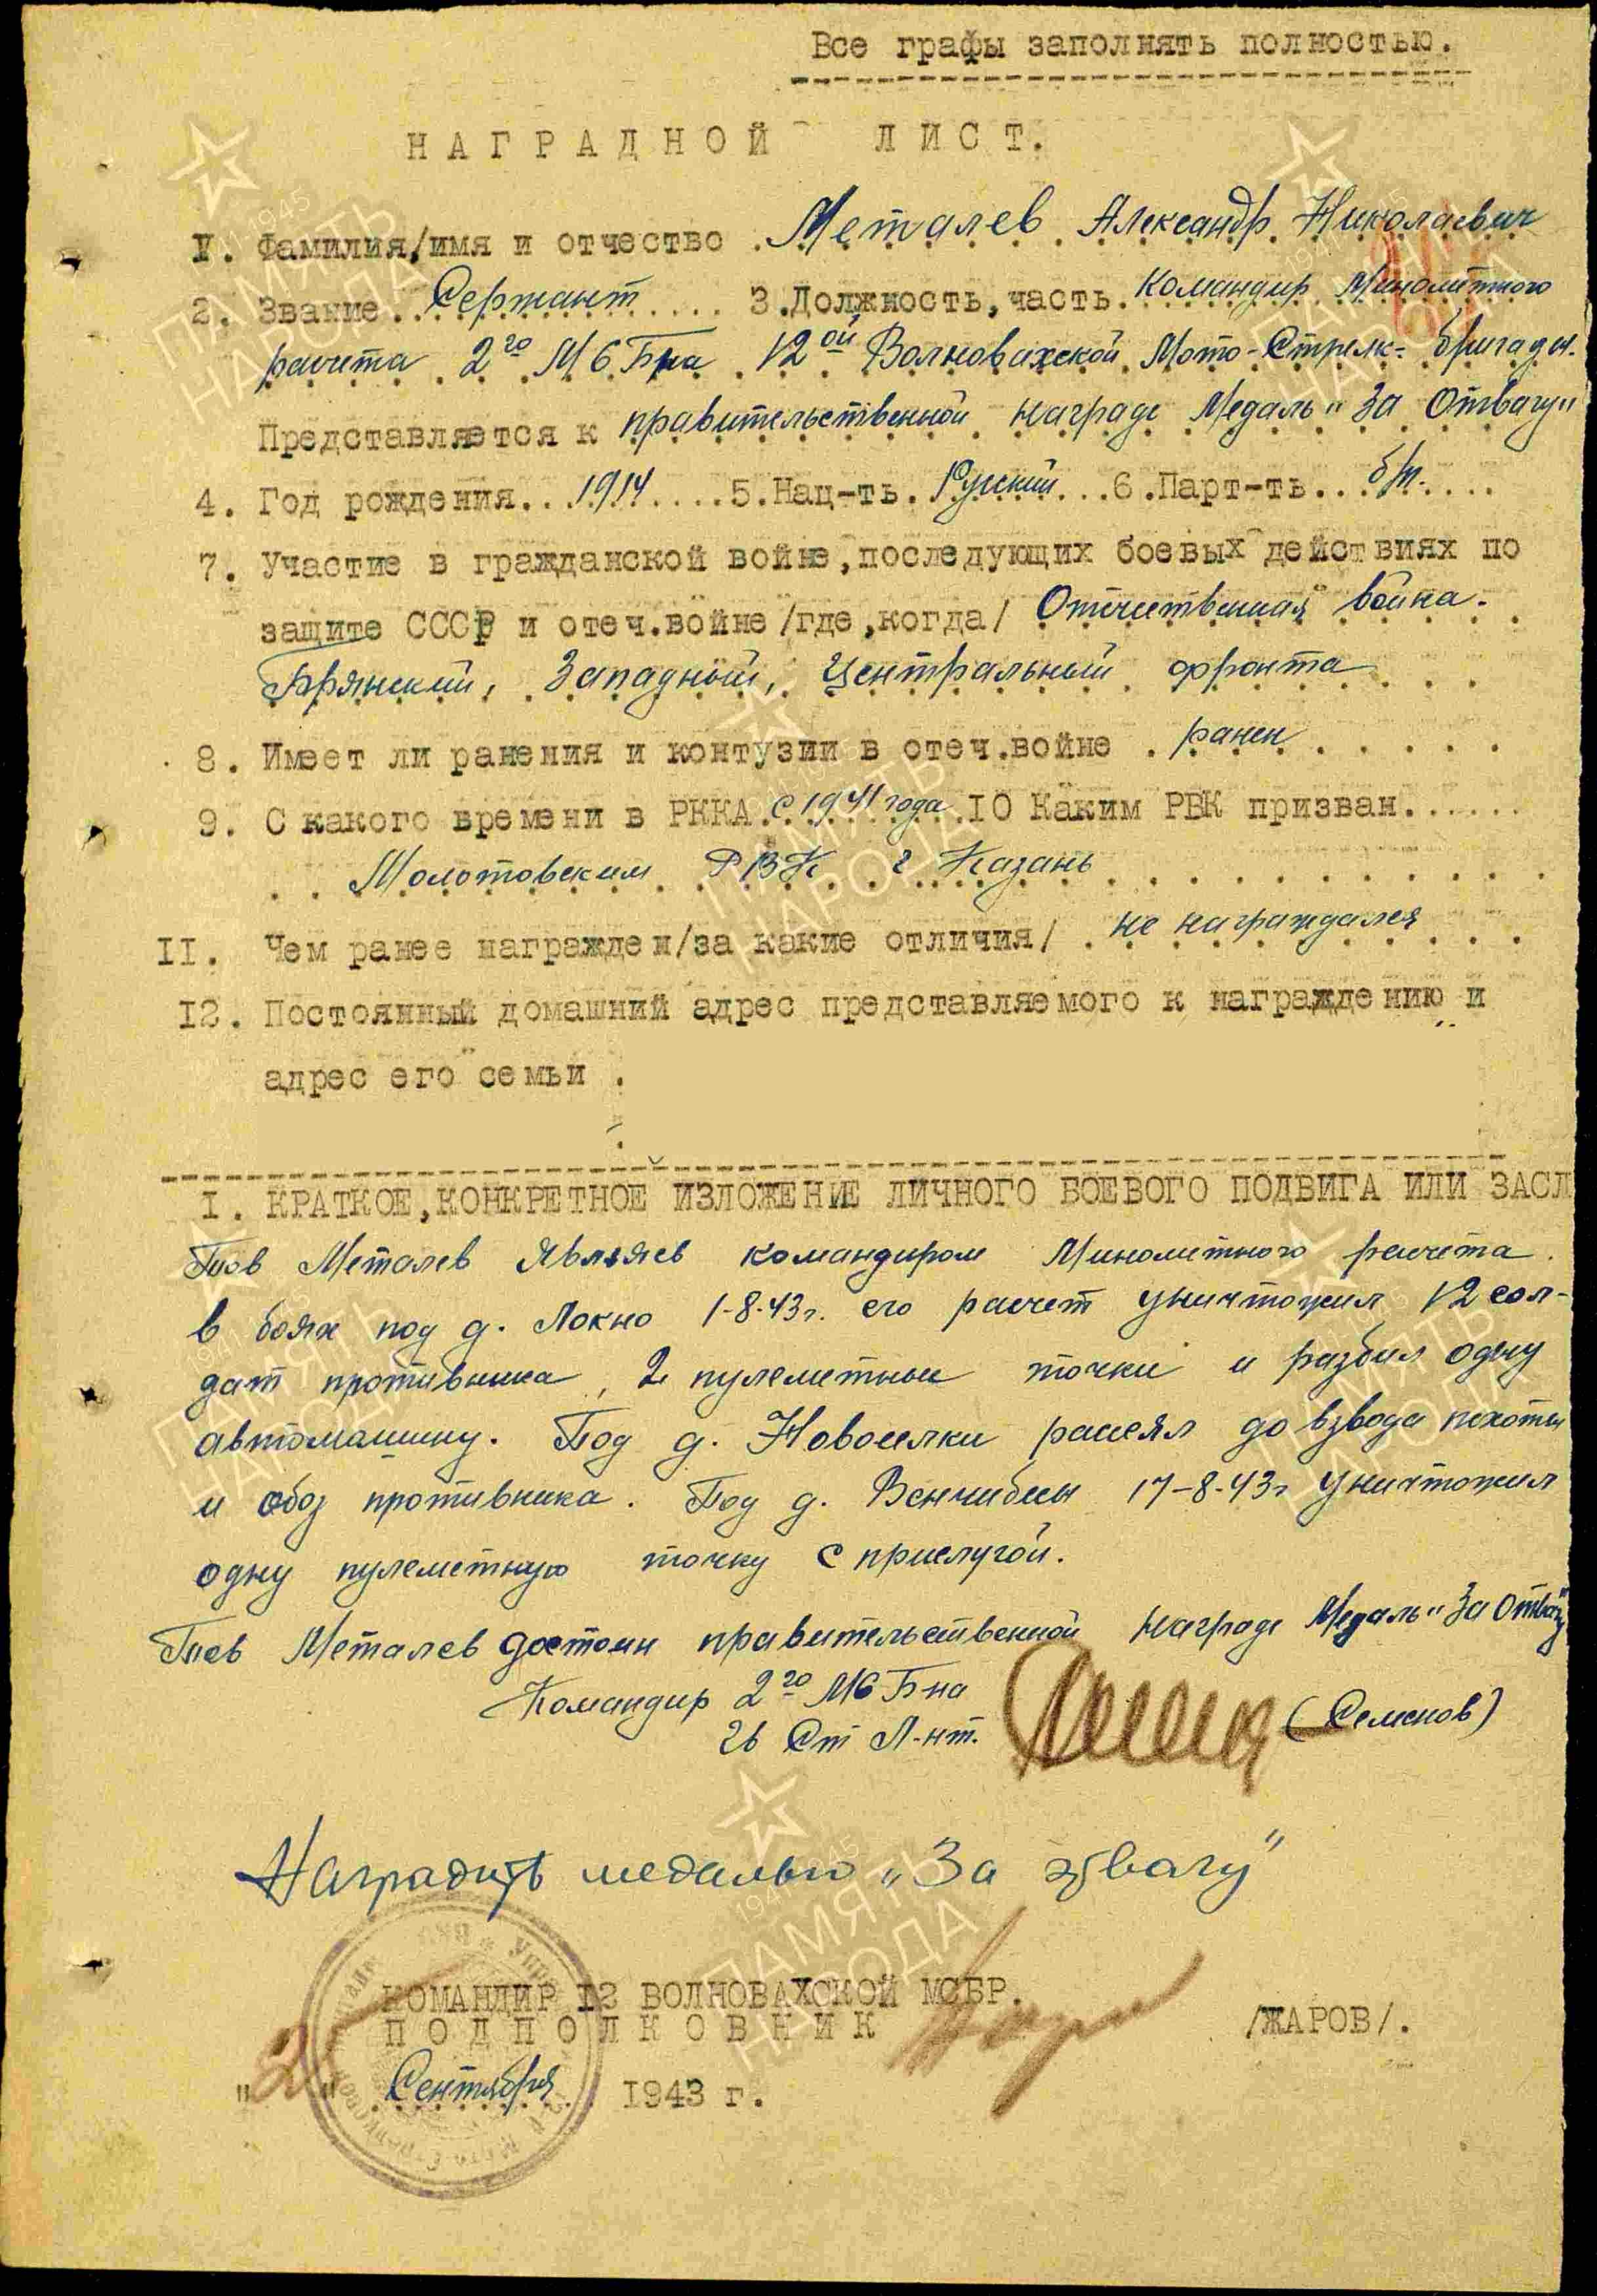 Все графы заполнять полностью.
НАГРАДНОЙ ЛИСТ.
I. Фамилия,/имя и отчество Металев Александр Николаевич
2. Звание Сержант 3. Должность, часть. Командир Минометного
расчета 2го МСБ-на 12ой Волновахской Мото-Стрелк- бригады.
Представляется к правительственной награде Медаль "За Отвагу"
4. Год рождения... 1914 .... 5. Нац-ть. Руский ... 6. Парт-ть... б/п.
7. Участие в гражданской войне, последующих боевых действиях по
защите СССР и отеч.войне /где, когда/ Отечественная война.
Брянский, Западный, Центральный фронта
8. Имеет ли ранения и контузии в отеч.войне . ранен
9. С какого времени в РККА с 1941 года 10 Каким РВК призван......
Молотовским РВК г Казань
II. Чем ранее награжден/за какие отличия/ . не награждался
12. Постоянный домашний адрес представляемого к награждению и
адрес его семьи .
I. КРАТКОЕ, КОНКРЕТНОЕ ИЗЛОЖЕНИЕ ЛИЧНОГО БОЕВОГО ПОДВИГА ИЛИ ЗАСЛ
Тов Металев являяев командиром Минометного расчета.
в боях под д. Локно 1-8-43г. его расчет уничтожил 12 сол-
дат противника, 2 пулеметные точки и разбил одну
автомашину. Под д. Новоселки рассеял до взвода пехоты
и обоз противника. Под д. 17-8-43г уничтожил
одну пулеметную точку с прислугой.
Тов Металев достоин правительственной награде Медаль "За Отвагу"
Командир 2го МСБ-на
Гв Ст Л-нт. (Семенов)
Наградить медалью "За отвагу"
КОМАНДИР 12 ВОЛНОВАХСКОЙ МСБР.
ПОДПОЛКОВНИК /ЖАРОВ/.
" " Сентября 1943 г.
ПАМЯТЬ НАРОДА